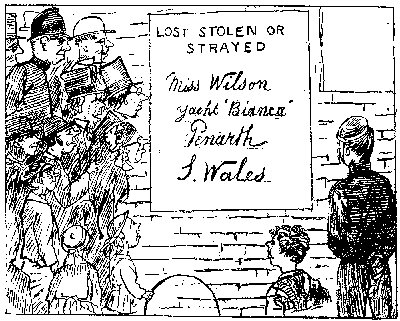 LOST STOLEN OR
STRAYED
Miss Wilson
Yacht "Bianca"
Penarth
S. Wales